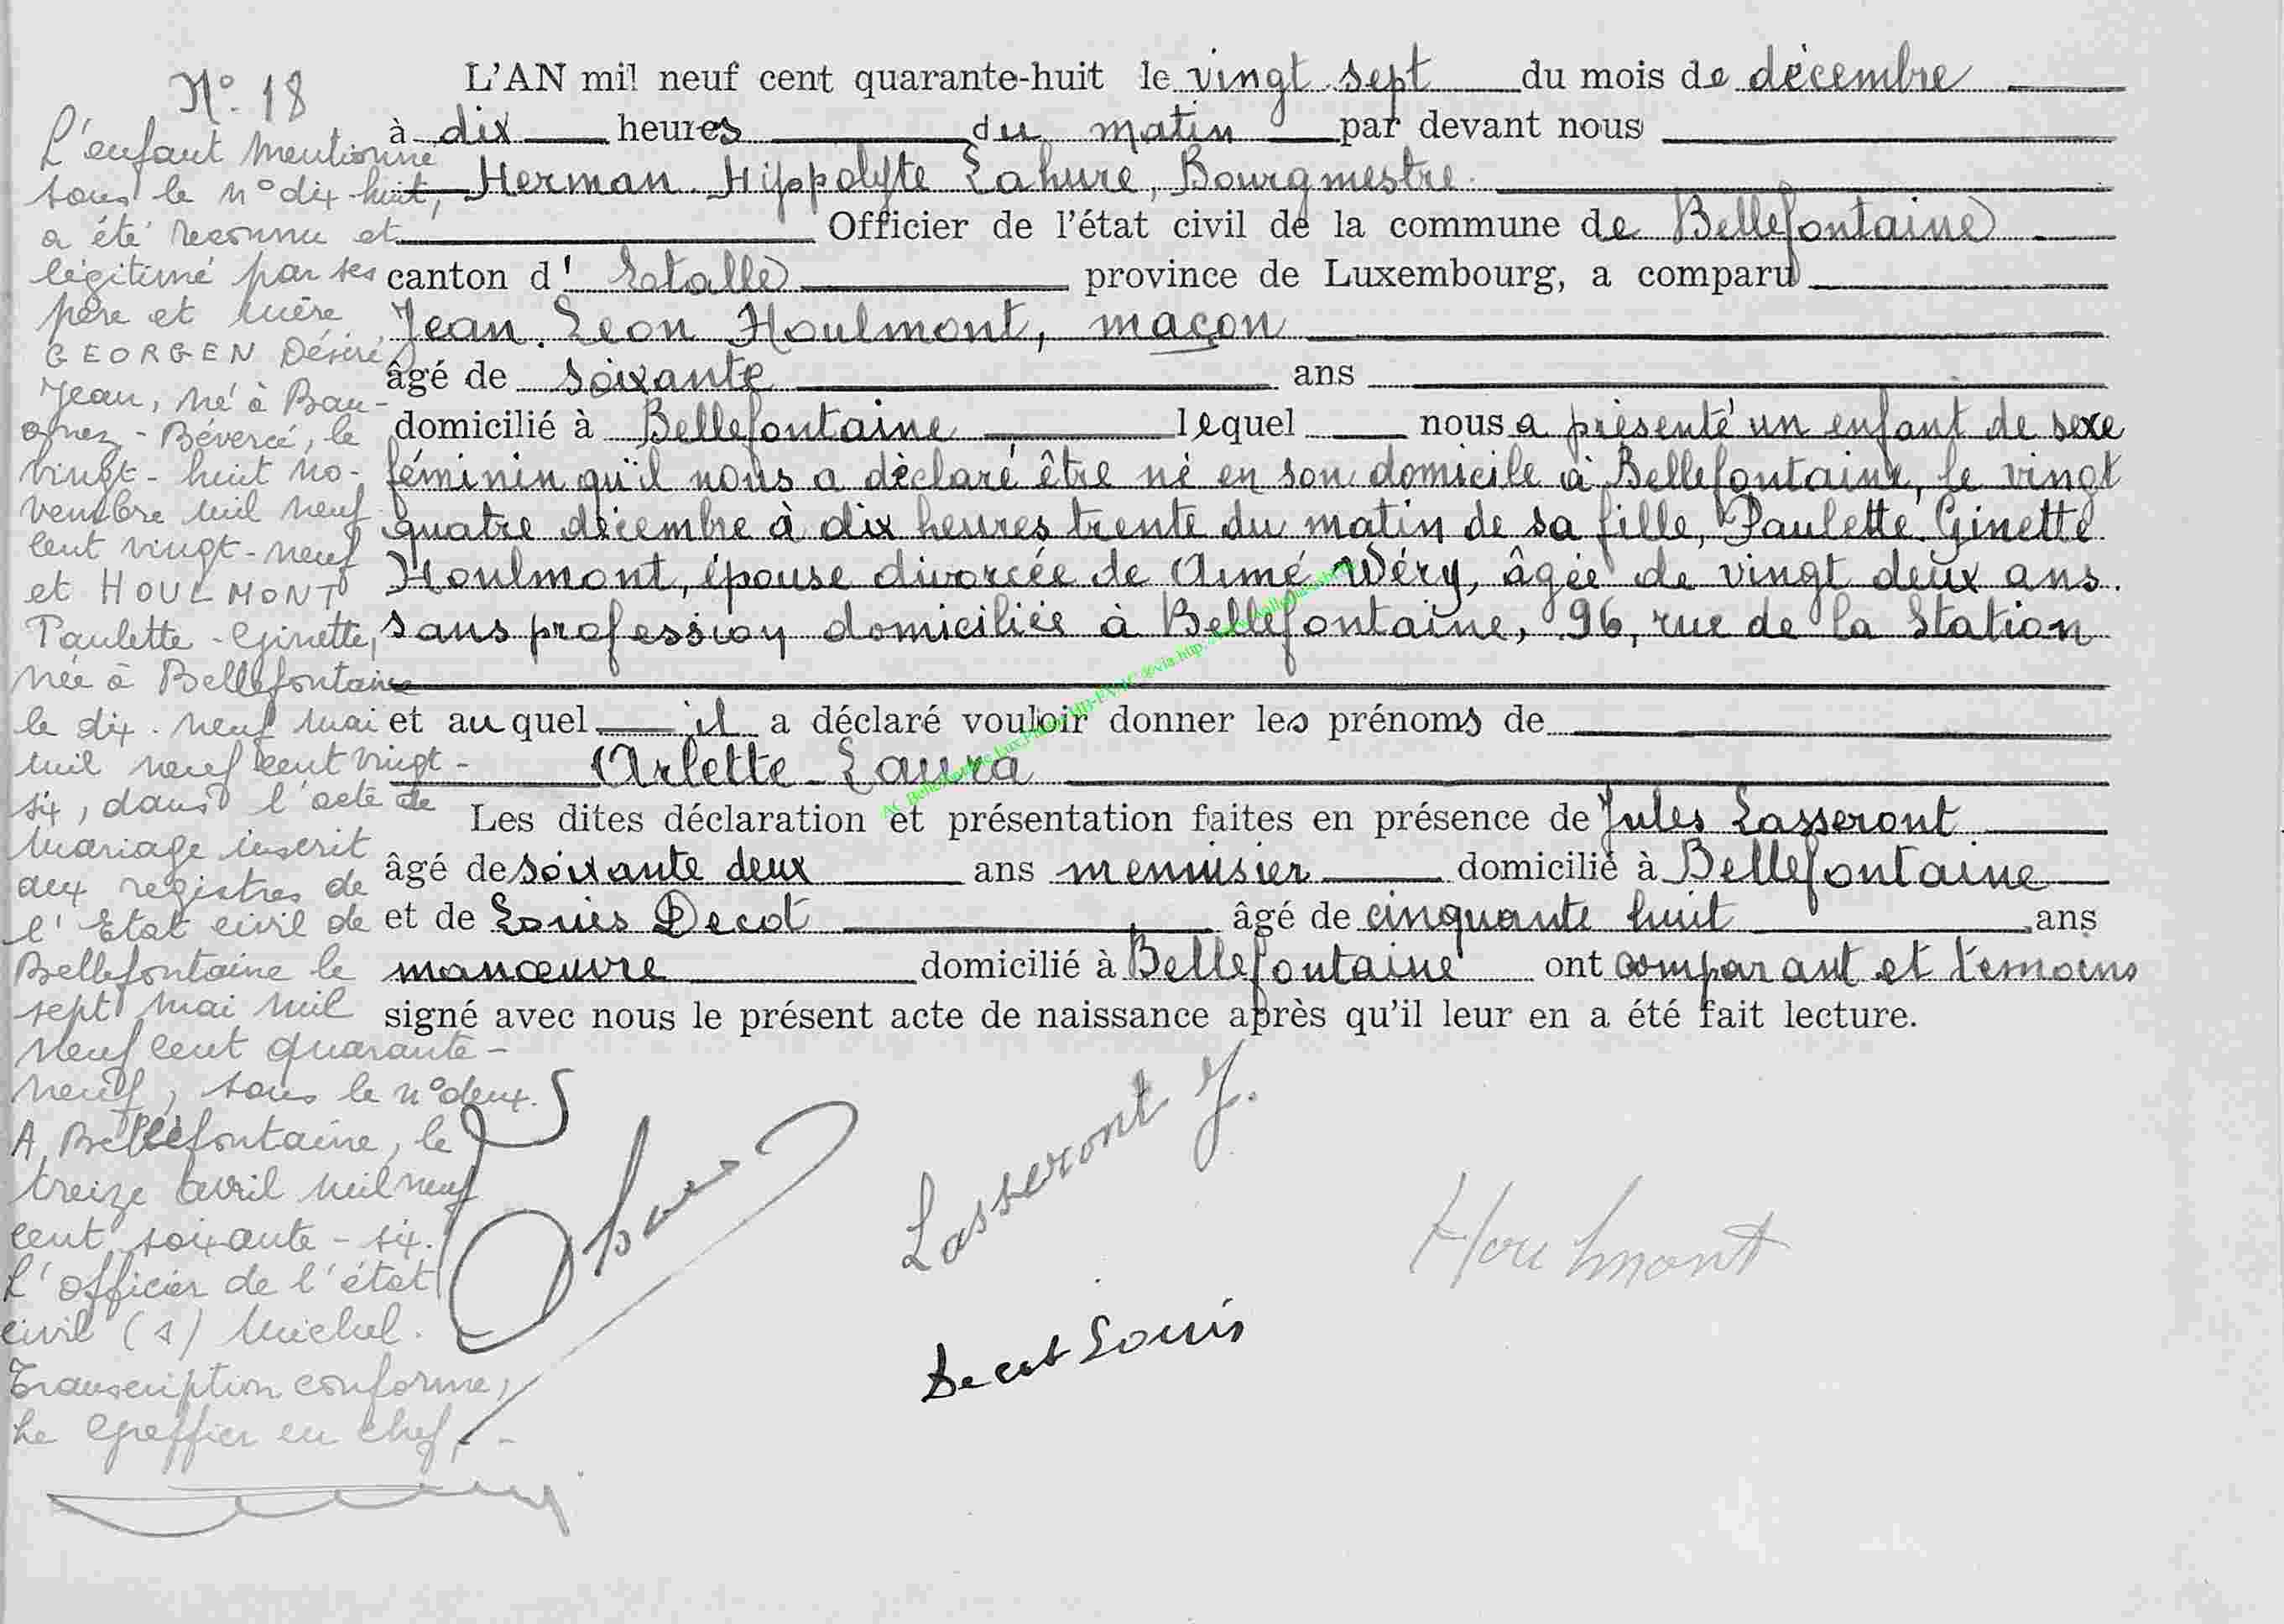 N° 18
L'enfant mentionné
sous le n° dix-huit,
a été reconnu et
légitimé par ses
père et mère
GEORGEN Désiré
Jean, né à Bau-
gnez-Bévercé, le
vingt-huit no-
vembre mil neuf
cent vingt-neuf
et HOULMONT
Paulette-Ginette,
née à Bellefontaine
le dix-neuf mai
mil neuf cent vingt-
six, dans l'acte de
mariage inscrit
aux registres de
l'Etat civil de
Bellefontaine le
sept mai mil
neuf cent quarante-
neuf, sous le n° deux.
A Bellefontaine, le
treize avril mil neuf
cent soixante-six.
L'officier de l'état
civil (s) Michel.
Transcription conforme,
Le Greffier en chef,
L'AN mil neuf cent quarante-huit le vingt sept du mois de décembre
à dix heures du matin par devant nous
Herman Hippolyte Lahure, Bourgmestre
Officier de l'état civil de la commune de Bellefontaine
canton d'Etalle province de Luxembourg, a comparu
Jean. Léon Houlmont, maçon
âgé de soixante ans
domicilié à Bellefontaine lequel nous a présenté un enfant de sexe
féminin qu'il nous a déclaré être né en son domicile à Bellefontaine, le vingt
quatre décembre à dix heures trente du matin de sa fille, Paulette. Ginette
Houlmont, épouse divorcée de Aimé Wéry, âgée de vingt deux ans.
sans profession domiciliée à Bellefontaine, 96, rue de la Station
et au quel il a déclaré vouloir donner les prénoms de
Arlette-Laura
Les dites déclaration et présentation faites en présence de Jules Lasseront
âgé de soixante deux ans menuisier domicilié à Bellefontaine
et de Louis Decot âgé de cinquante huit ans
manœuvre domicilié à Bellefontaine ont comparant et témoins
signé avec nous le présent acte de naissance après qu'il leur en a été fait lecture.
Lasseront J.
Houlmont
Decot Louis